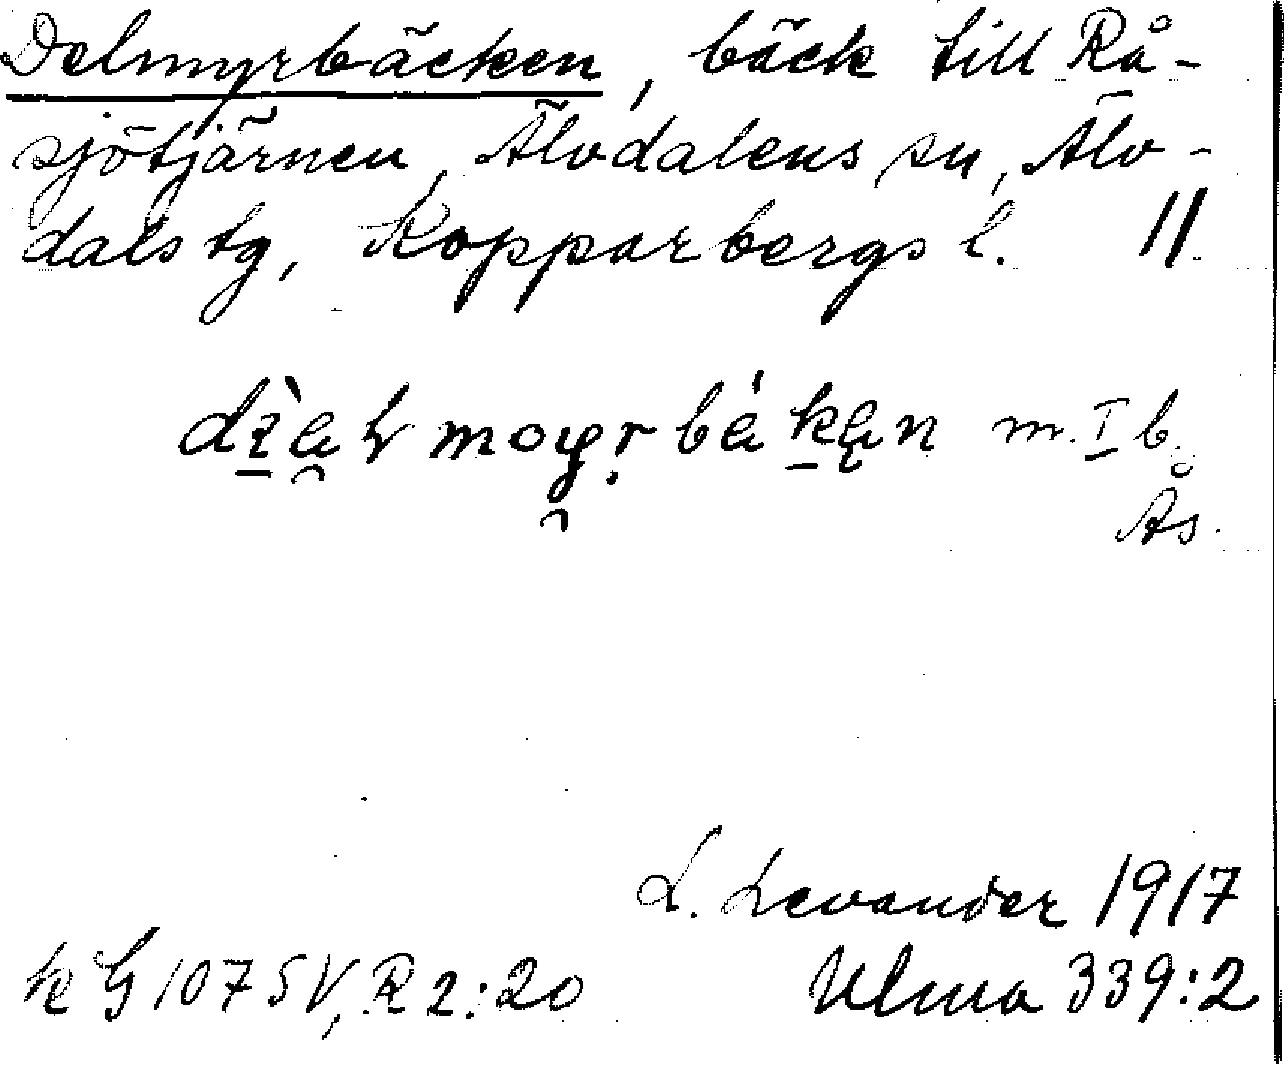 Delmyrbäcken, bäck till Rå-
sjötjärnen, Älvdalens sn, Älv-
dals tg, Kopparbergs l. 11
m. I b.
Ås.
L. Levander 1917
k G 107 SV, R 2:20 Ulma 339:2